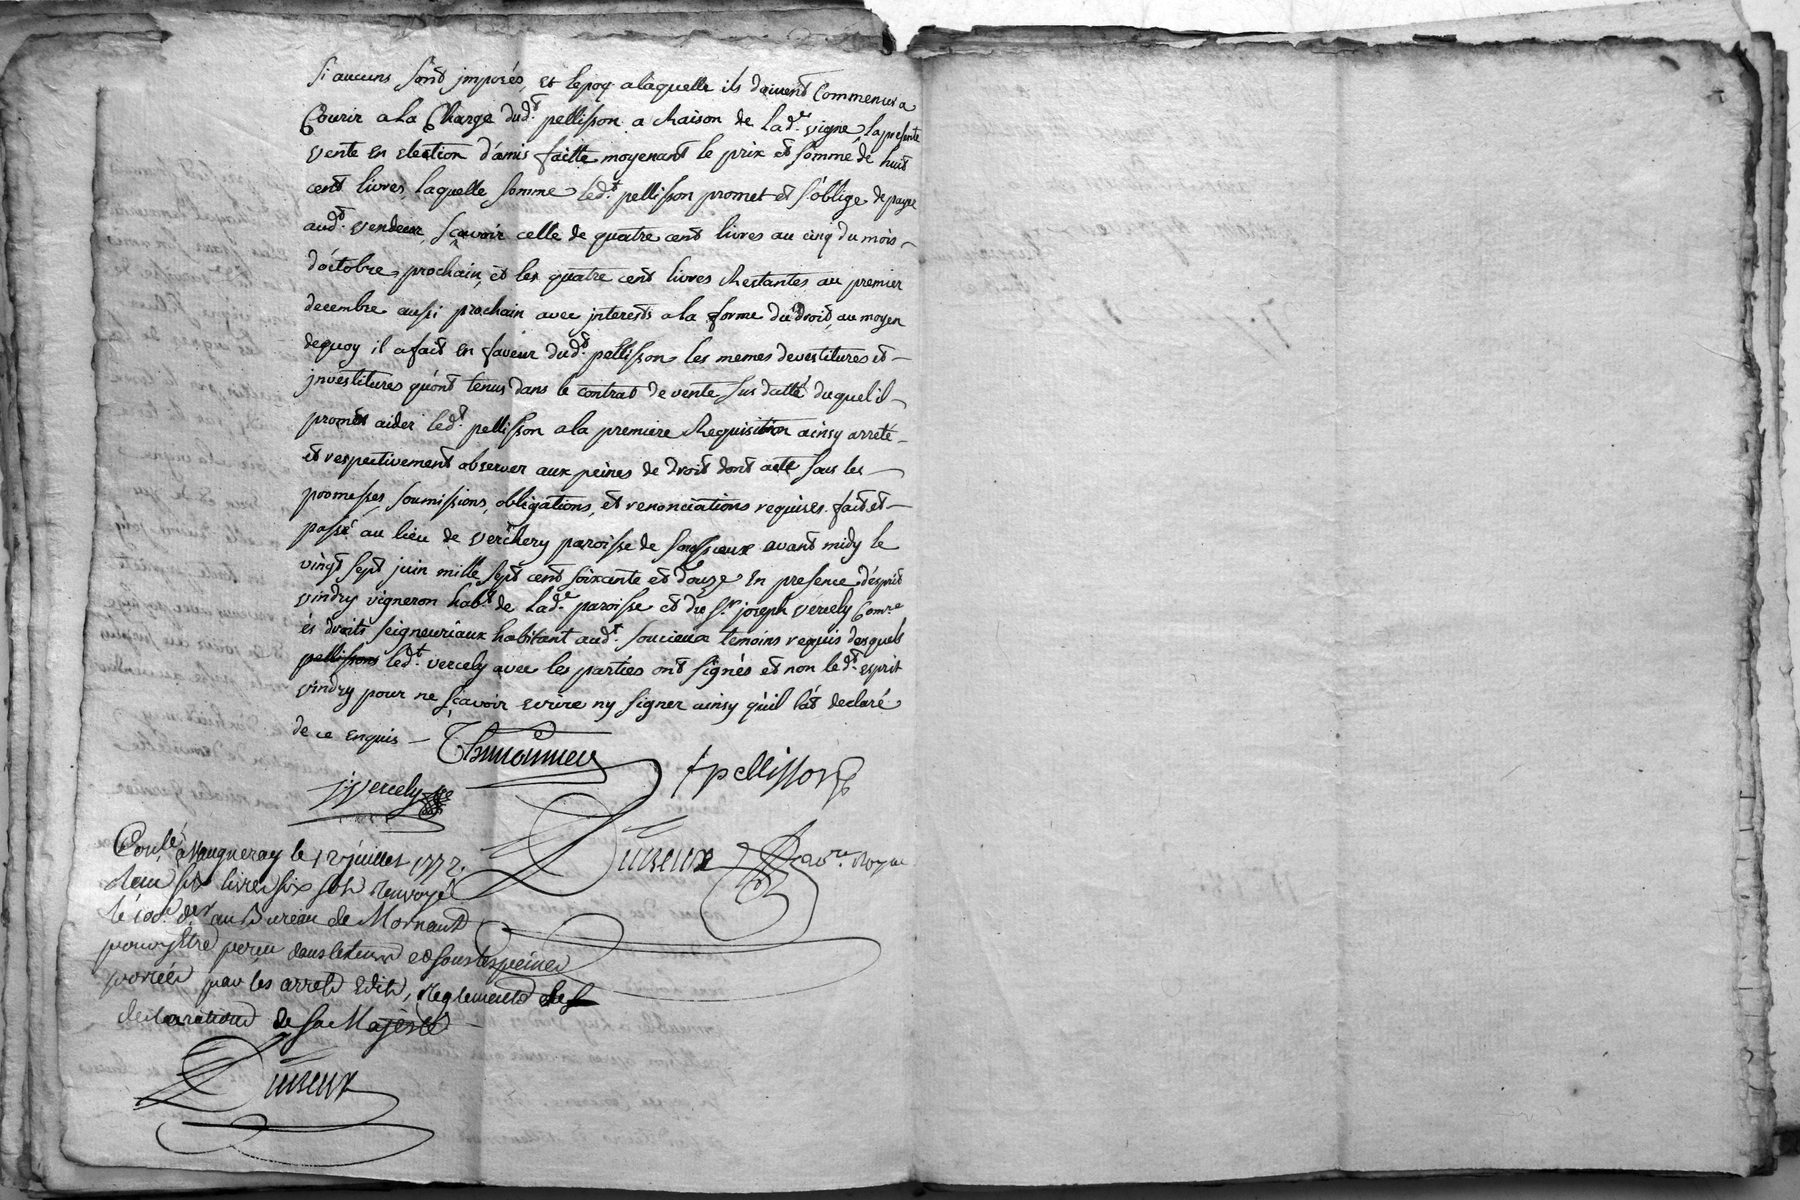 si aucuns sont jmposés, et lepoq alaquelle ils doivent Commencer a
Courir a la Charge dud.t pellisson a Raison de lad.e vigne, la presente
vente en election d'amis faitte moyenant le prix et somme de huit
cent livres, laquelle somme led.t pellisson promet et s'oblige de payer
aud.t vendeur, scavoir celle de quatre cent livres au cinq du mois
d'octobre prochain, et les quatre cent livres Restantes au premier
decembre aussi prochain avec jnterests a la forme du Droit, au moyen
dequoy il a fait en faveur dud.t pellisson les memes devestitures et
jnvestitures qu'ont tenus dans le contrat de vente sus datté duquel il
promet aider led.t pellisson a la premiere Requisition ainsy arreté
et respectivement observer aux peines de droit dont acte sous les
promesses, soumissions, obligations, et renonciations requises. fait et
passé au lieu de verchery paroisse de soussieux avant midy le
vingt sept juin mille sept cent soixante et douze en presence d'esprit
vindry vigneron hab.t de lad.e paroisse et du s.r joseph vercely Com.re
és droits seigneuriaux habitant aud.t soucieux temoins requis desquels
pellisson led.t vercely avec les parties ont signés et non led.t esprit
vindry pour ne scavoir ecrire ny signer ainsy qu'il l'at declaré
de ce enquis
Thimonnier
f pellisson
j vercely
Dureux no.re Royal
Con.lé a Vaugneray le 12 juillet 1772.
Reçu six livres six sols Renvoyé
le 100.e d.er au Bureau de Mornant
pour y Etre perçu dans le tems et sous les peines
portées par les arrets Edits, Reglements et
declarations de sa Majesté
Dureux